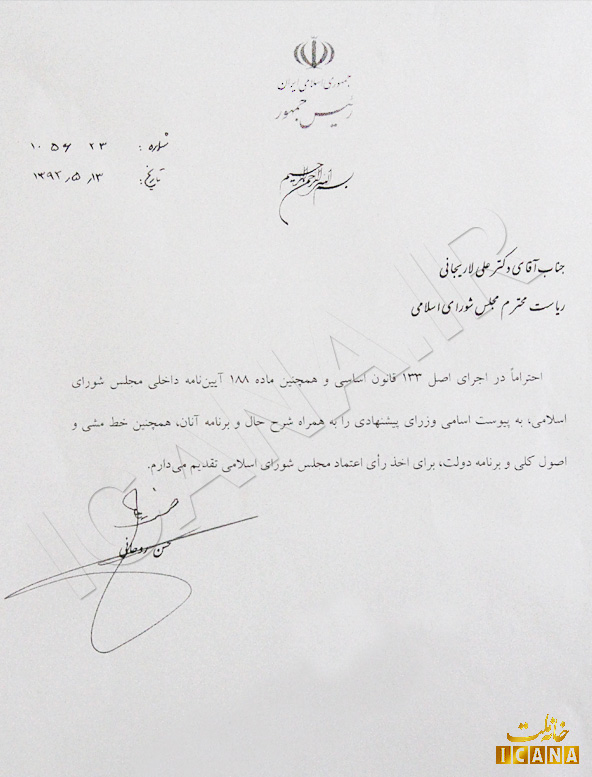 جمهوری اسلامی ایران
رئیس جمهور
شماره: ۱۰۵۶۲۳
تاریخ: ۱۳۹۲٫۵٫۱۳
بسم الله الرحمن الرحیم
جناب آقای دکتر علی لاریجانی
ریاست محترم مجلس شورای اسلامی
احتراماً در اجرای اصل ۱۳۳ قانون اساسی و همچنین ماده ۱۸۸ آیین‌نامه داخلی مجلس شورای
اسلامی، به پیوست اسامی وزرای پیشنهادی را به همراه شرح حال و برنامه آنان، همچنین خط مشی و
اصول کلی و برنامه دولت، برای اخذ رأی اعتماد مجلس شورای اسلامی تقدیم می‌دارم.
حسن روحانی
ICANA.IR
خانه ملت
ICANA